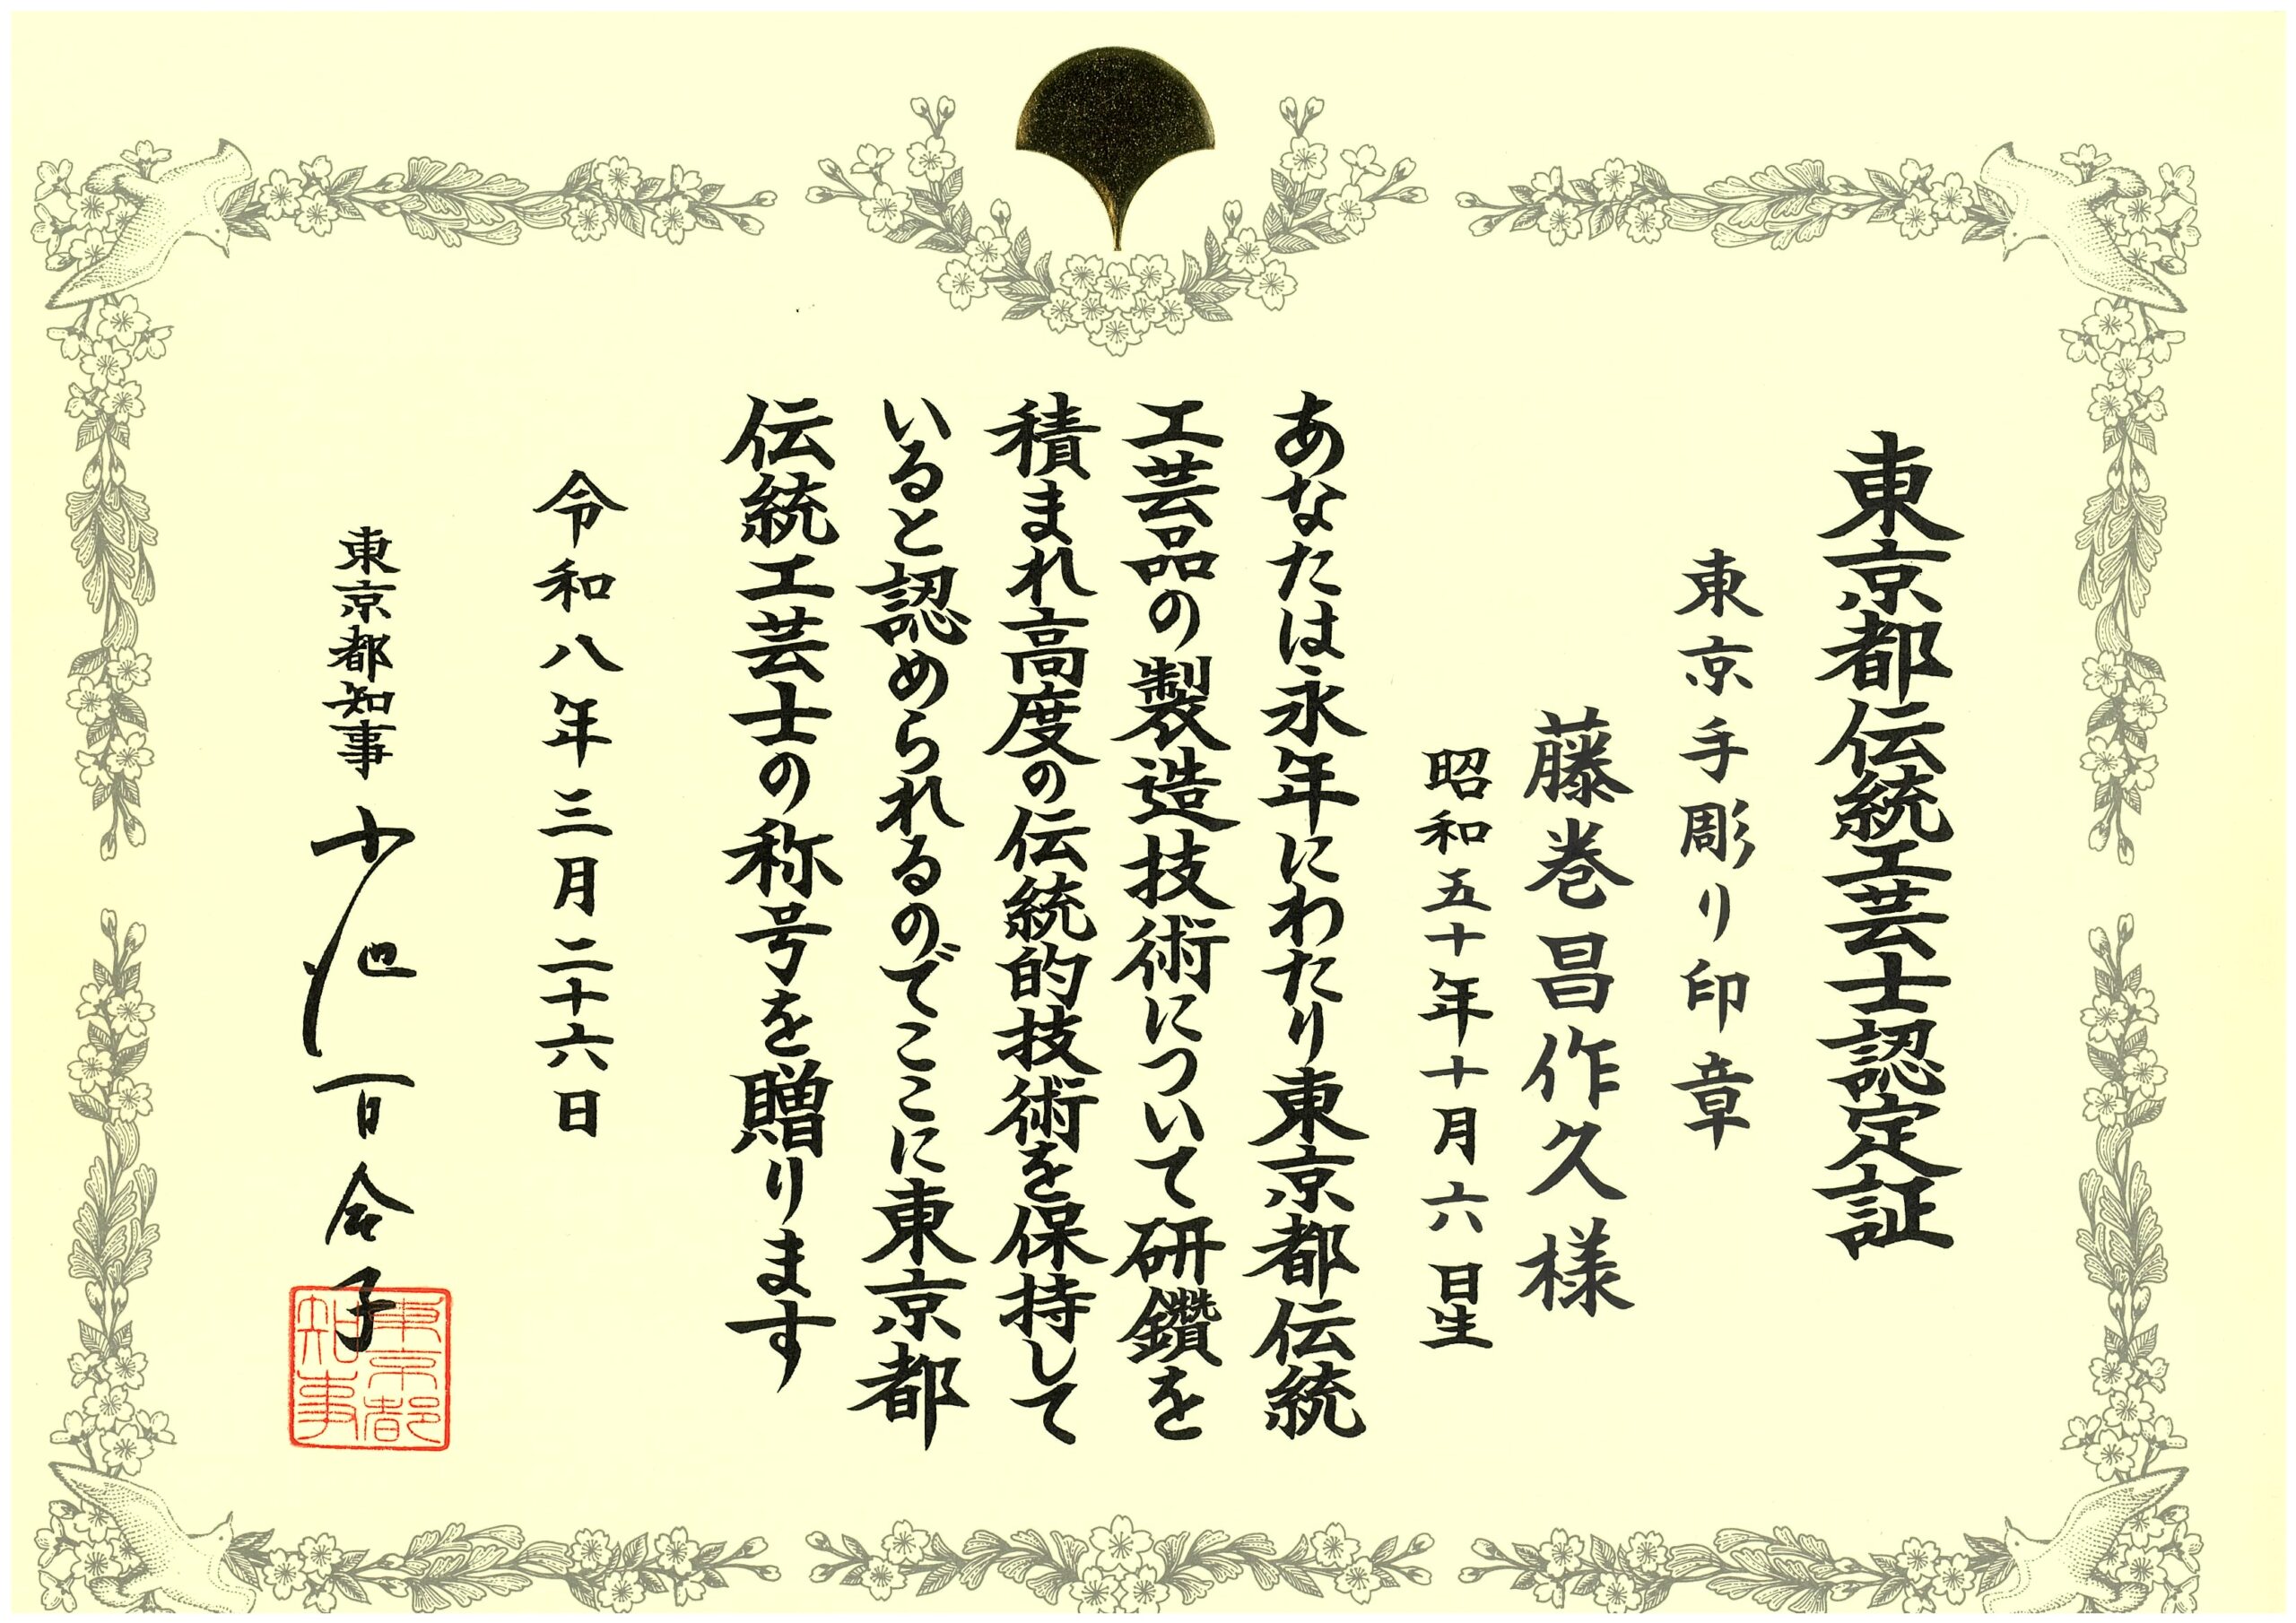 東京都伝統工芸士認定証
東京手彫り印章
藤巻昌作久様
昭和五十年十月六日生
あなたは永年にわたり東京都伝統
工芸品の製造技術について研鑽を
積まれ高度の伝統的技術を保持して
いると認められるのでここに東京都
伝統工芸士の称号を贈ります
令和八年三月二十六日
東京都知事 小池百合子
東京都
知事